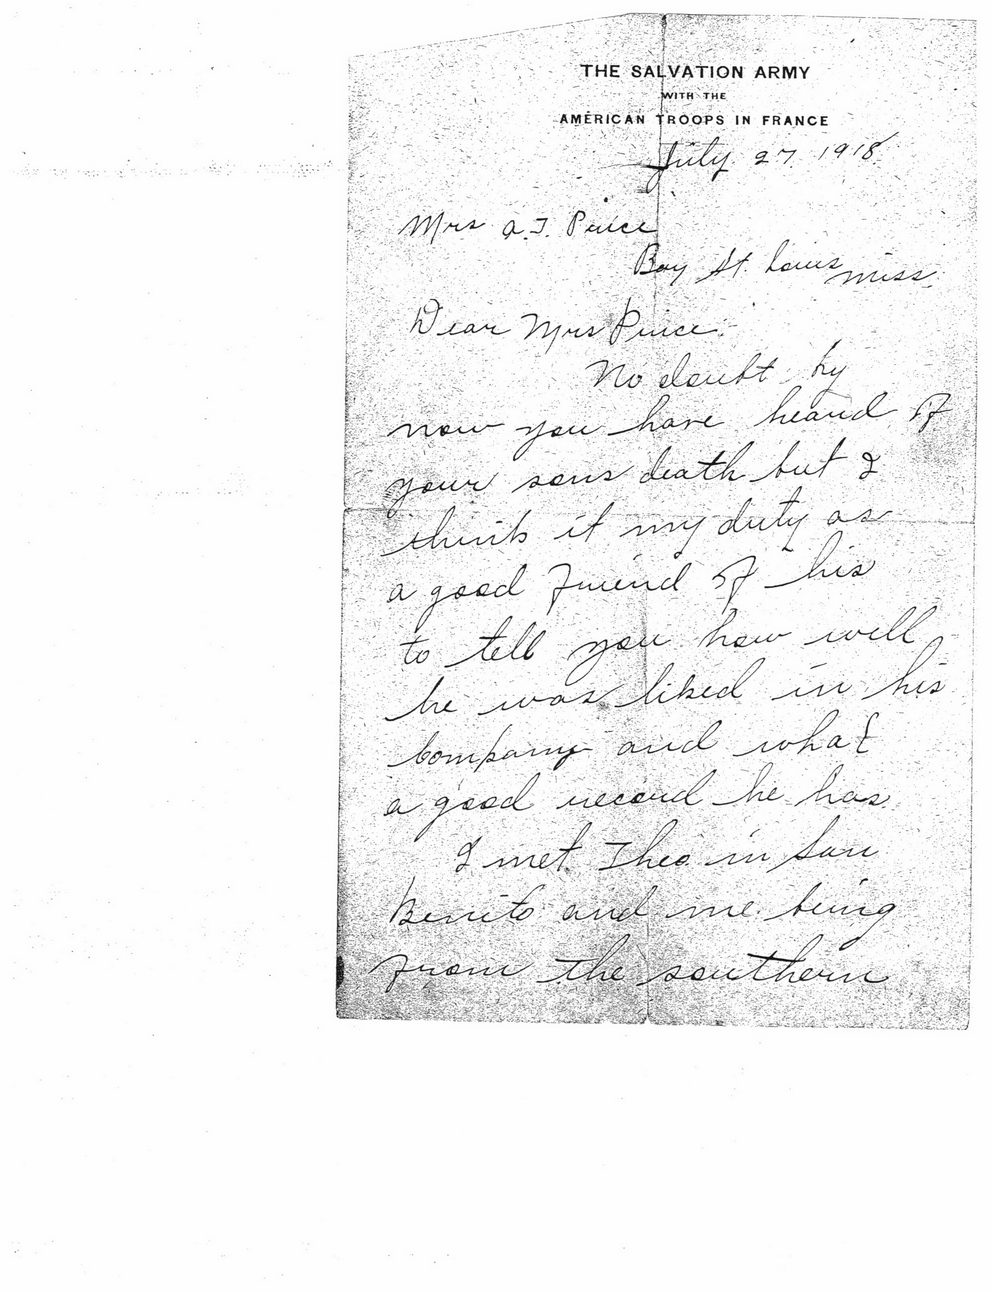 THE SALVATION ARMY
WITH THE
AMERICAN TROOPS IN FRANCE
July 27 1918
Mrs A. T. Price
Bay St. Louis
Miss.
Dear Mrs Price.
No doubt by
now you have heard of
your sons death but I
think it my duty as
a good friend of his
to tell you how well
he was liked in his
Company and what
a good record he has
I met Theo in San
Benito and me being
from the southern